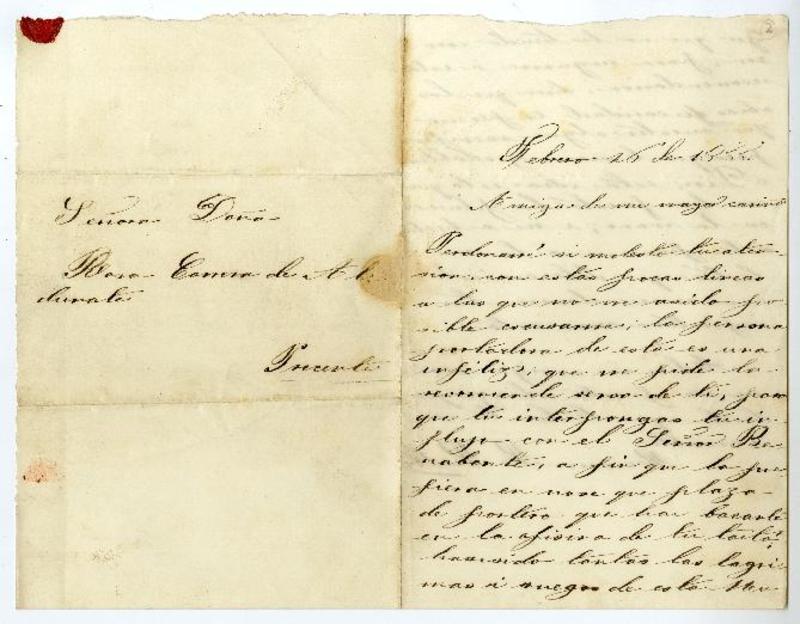 Señora Doña
Rosa Correa de A
dunate
Presente
2
Febrero 26 de
Amiga de mi mayor cariño
Perdoname si molesto tu aten
sion con estas pocas lineas
a las que no me asido po
sible escusarme; la persona
portadora de esta es una
infeliz, que me pide la
recomiende serca de ti, para
que tu interpongas tu in
flujo con el Señor Be
nabente, a fin que lo pu
siera en una que plaza
de portero que hai bacante
en la ofisina de tu
haciendo tantas las lagri
mas i ruegos de esta